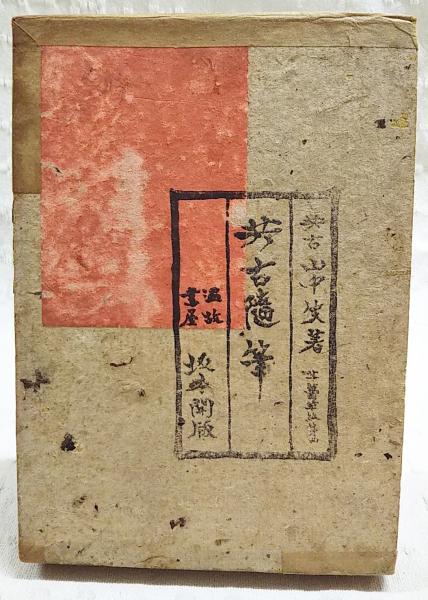 共古 山中笑著
共古隨筆
温故
書屋
坂本開版